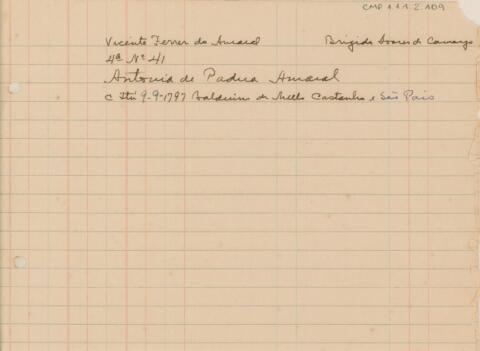 CMP 1.1.1.2.109
Vicente Ferrer do Amaral Brigida Soares de Camargo
4ª Nº 41
Antonia de Padua Amaral
c Itú 9-9-1797 Balduino de Mello Castanho e São Pais